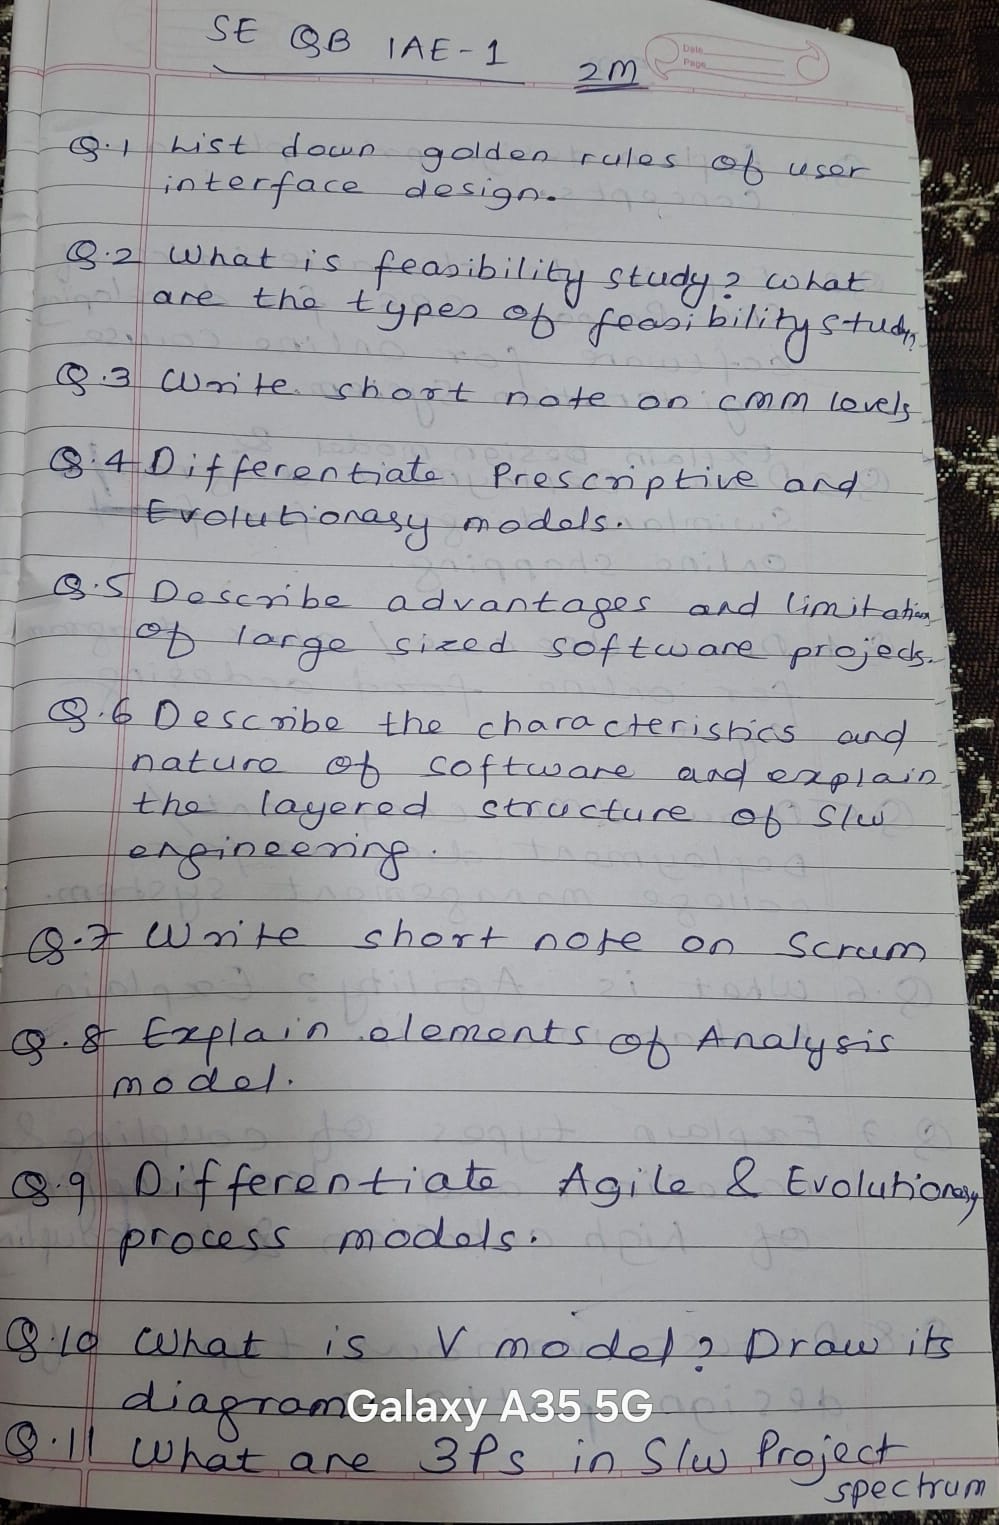 SE QB IAE-1
2M
Date
Page
Q.1 List down golden rules of user
interface design.
Q.2 What is feasibility study? What
are the types of feasibility study?
Q.3 Write short note on CMM levels
Q.4 Differentiate Prescriptive and
Evolutionary models.
Q.5 Describe advantages and limitations
of large sized software projects.
Q.6 Describe the characteristics and
nature of software and explain
the layered structure of S/w
engineering.
Q.7 Write short note on Scrum
Q.8 Explain elements of Analysis
model.
Q.9 Differentiate Agile & Evolutionary
process models.
Q.10 What is V model? Draw its
diagram
Galaxy A35 5G
Q.11 What are 3Ps in S/w Project
spectrum